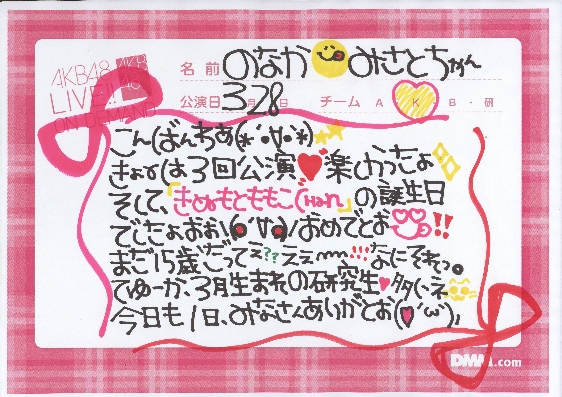 AKB48
LIVE!!
ON DEMAND
名前 のなか みさとちゃん
公演日 3月28日 チーム A K B・研
こんばんちあ(*´･∀･*)
きょうは3回公演♥楽しかったよ
そして、「きぬもとももこCHan」の誕生日
でしたよおおい(●´∀`●)/おめでとお!!
まだ15歳だってぇ??ええ~~!!!なにそれっ。
てゆーか、3月生まれの研究生♥多くにえ
今日も1日、みなさんありがとお(♥´ω`)、
DMM.com